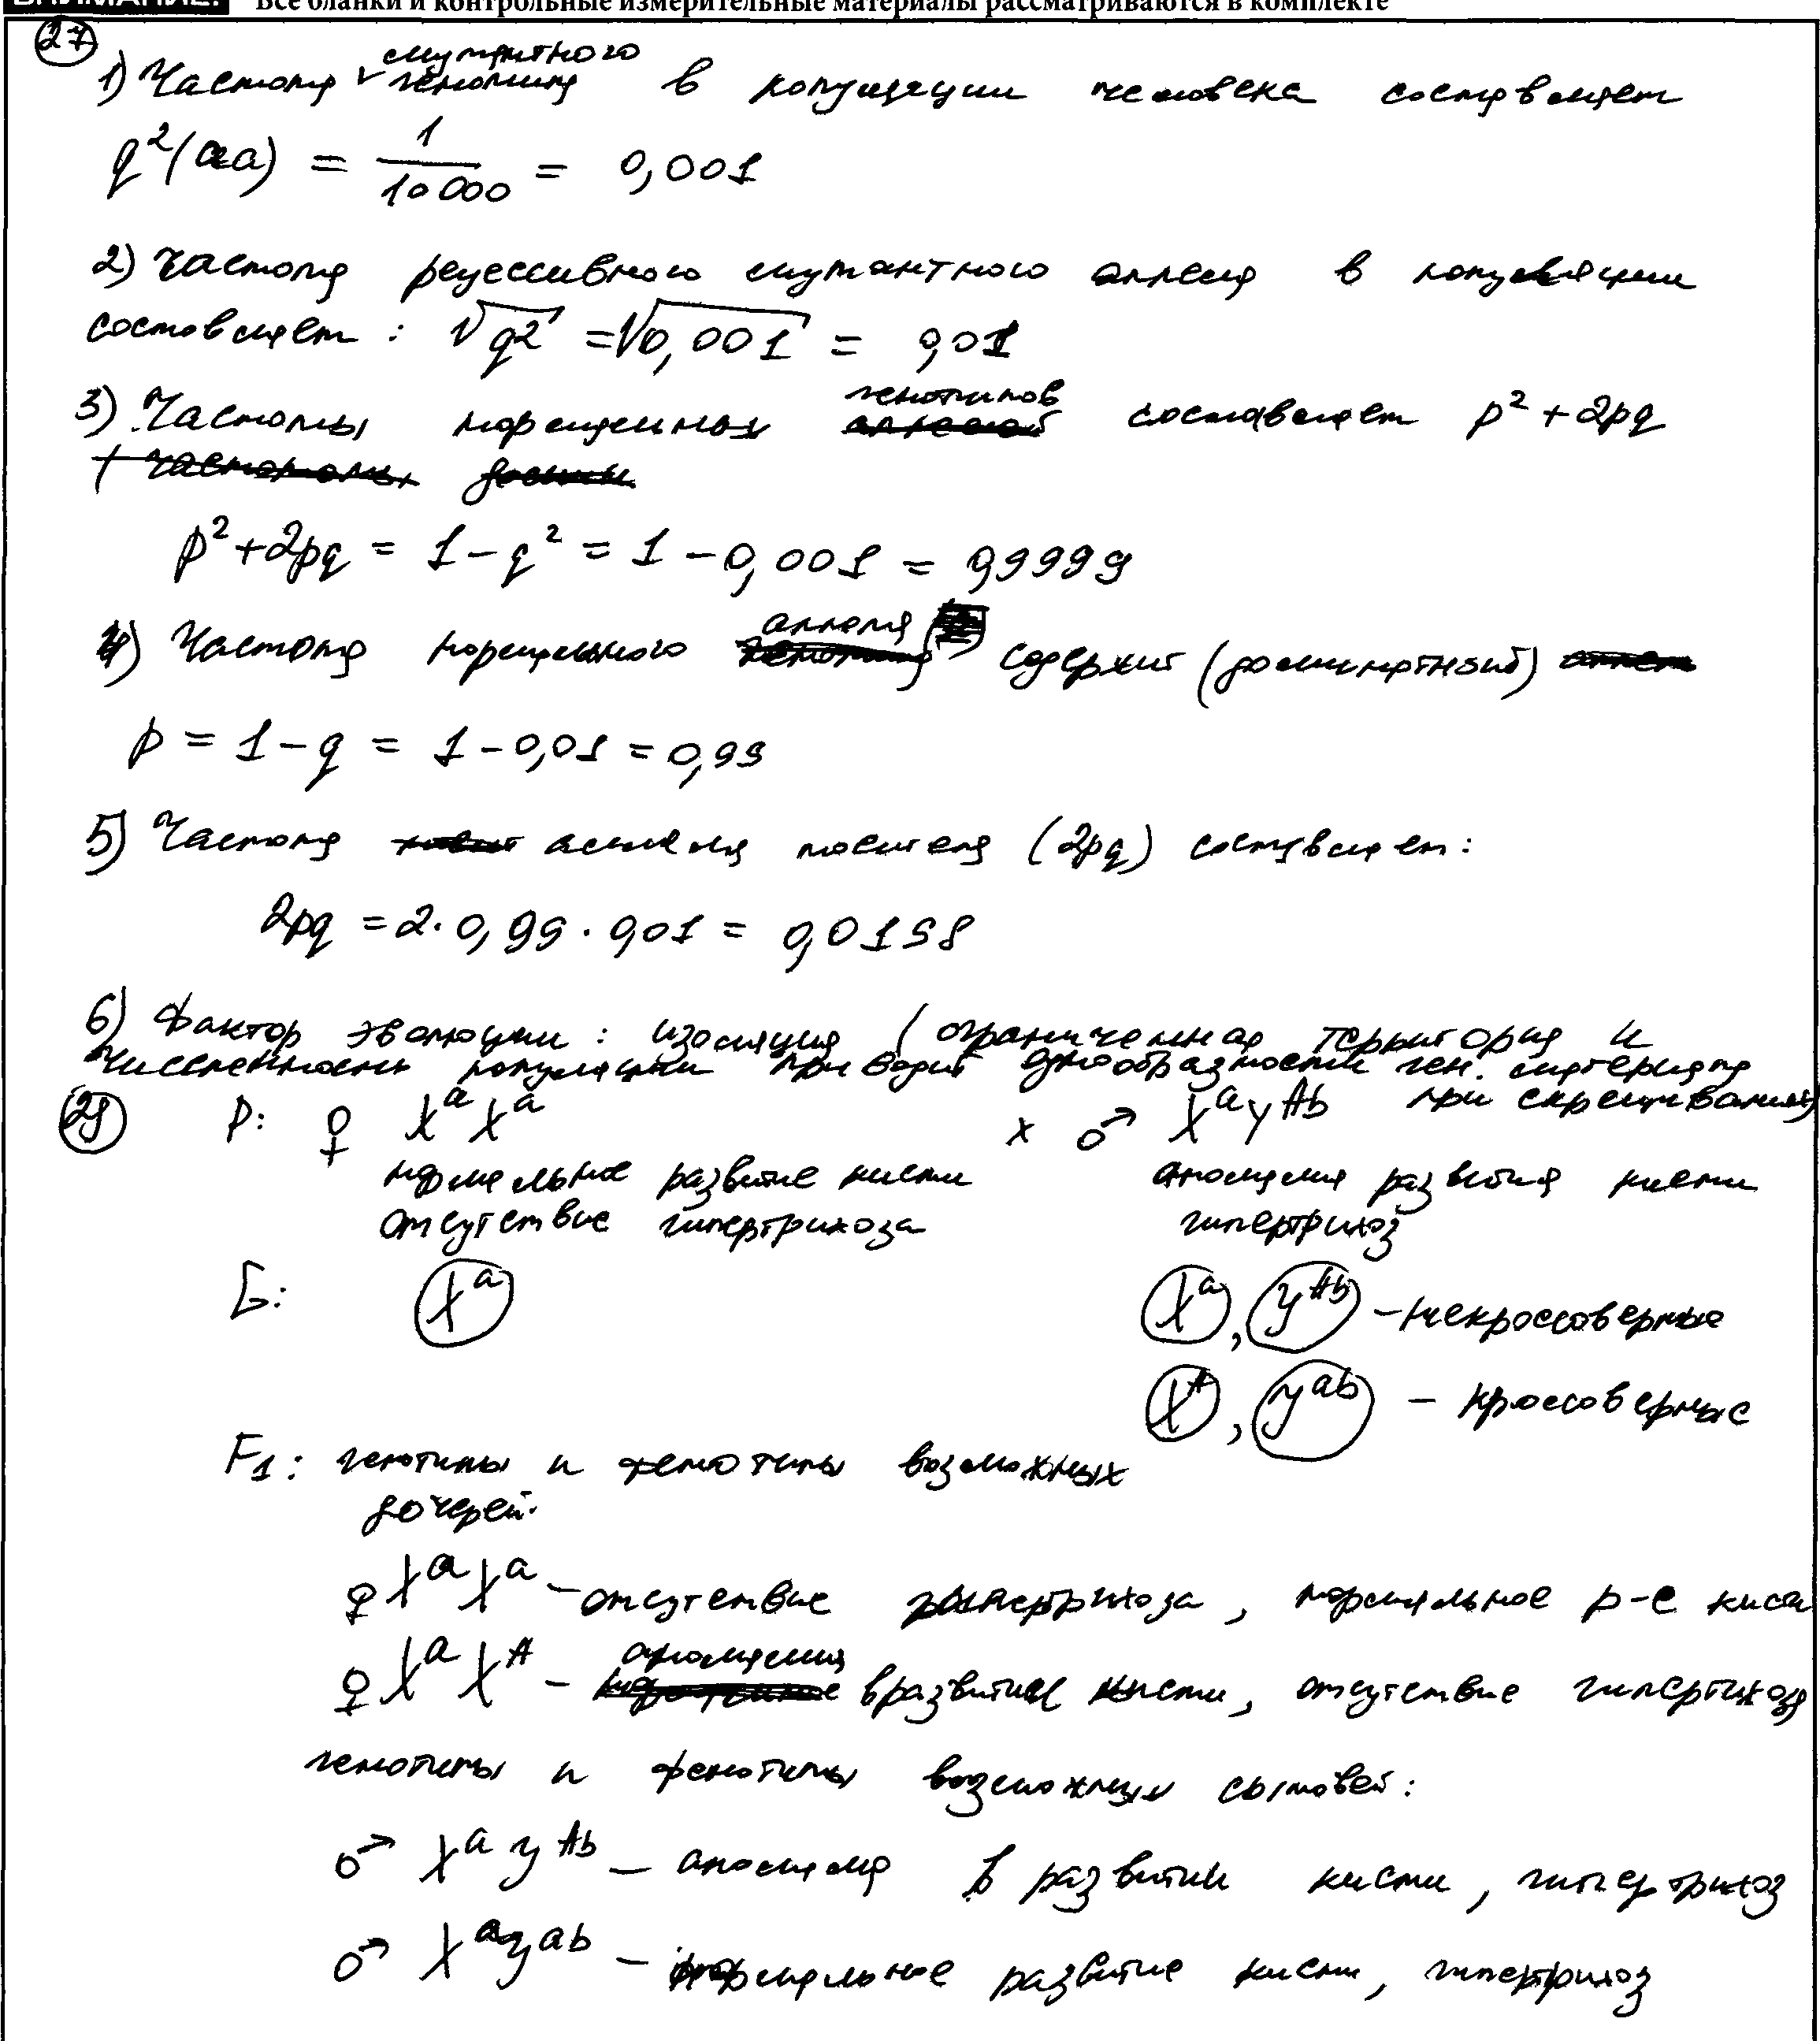 ВНИМАНИЕ! Все бланки и контрольные измерительные материалы рассматриваются в комплекте
27
1) Частота мутантного генотипа в популяции человека составляет
q²(aa) = 1/10000 = 0,001
2) Частота рецессивного мутантного аллеля в популяции
составляет: √q2 = √0,001 = 0,01
3) Частоты нормальных генотипов составляет p² + 2pq
p² + 2pq = 1 - q² = 1 - 0,001 = 0,9999
4) Частота нормального аллеля содержит (доминантный)
p = 1 - q = 1 - 0,01 = 0,99
5) Частота аллеля носителя (2pq) составляет:
2pq = 2 · 0,99 · 0,01 = 0,0198
6) Фактор эволюции: изоляция (ограниченная территория и
численность популяции приводит однообразности ген. материала
при скрещивании)
29 P: ♀ XᵃXᵃ x ♂ XᵃYᴬᵇ
нормальное развитие кисти аномалия развития кисти
отсутствие гипертрихоза гипертрихоз
G: Xᵃ Xᵃ, Yᴬᵇ - некроссоверные
Xᴬ, Yᵃᵇ - кроссоверные
F1: генотипы и фенотипы возможных
дочерей.
♀ XᵃXᵃ - отсутствие гипертрихоза, нормальное р-е кисти
♀ XᵃXᴬ - аномалия в развитии кисти, отсутствие гипертихоза
генотипы и фенотипы возможных сыновей:
♂ XᵃYᴬᵇ - аномалия в развитии кисти, гипертрихоз
♂ XᵃYᵃᵇ - нормальное развитие кисти, гипертрихоз